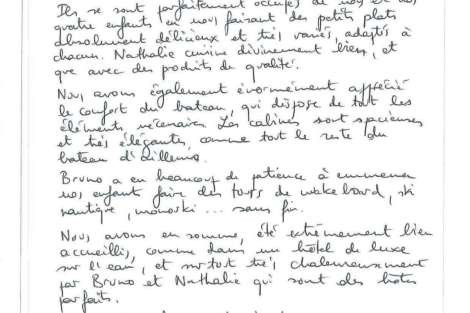 Ils se sont parfaitement occupés de nous et nos
quatre enfants en nous faisant des petits plats
absolument délicieux et très variés, adaptés à
chacun. Nathalie cuisine divinement bien, et
que avec des produits de qualité.
Nous avons également énormément apprécié
le confort du bateau, qui dispose de tout les
éléments nécessaires. Les cabines sont spacieuses
et très élégantes, comme tout le reste du
bateau d'ailleurs.
Bruno a eu beaucoup de patience à emmener
nos enfants faire des tours de wake board, ski
nautique, monoski ... sans fin.
Nous avons en somme, été extrêmement bien
accueillis, comme dans un hôtel de luxe
sur l'eau, et surtout très chaleureusement
par Bruno et Nathalie qui sont des hôtes
parfaits.